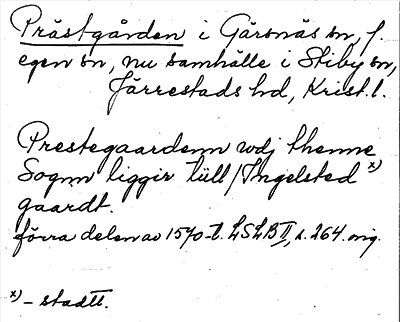 Prästgården i Gärsnäs sn, f.
egen sn, nu samhälle i Stiby sn,
Järrestads hd, Krist. l.
Prestegaardenn wdj thenne
Sognn liggir till /Ingelsted x)
gaardt.
förra delen av 1570-t. LSLB II, s. 264. orig.
x) - stadtt.